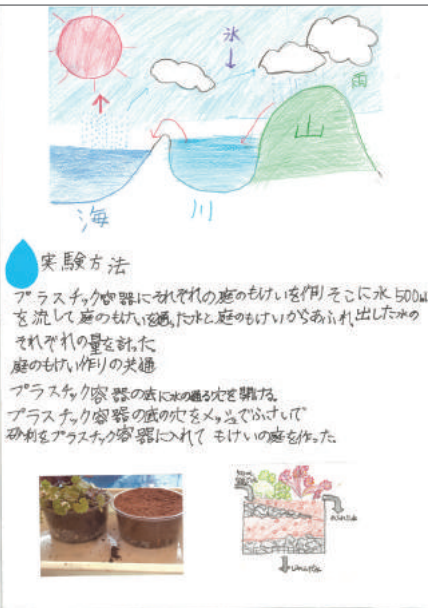 氷
雨
山
海
川
実験方法
プラスチック容器にそれぞれの庭のもけいを作り そこに水500ml
を流して庭のもけいを通った水と庭のもけいからあふれ出した水の
それぞれの量を計った
庭のもけい作りの共通
プラスチック容器の底に水の通る穴を開ける。
プラスチック容器の底の穴をメッシュでふさいで
砂利をプラスチック容器に入れて もけいの庭を作った